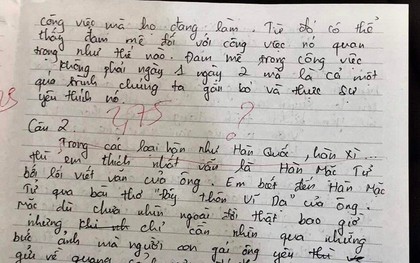 công việc mà họ đang làm. Từ đó có thể
thấy đam mê đối với công việc nó quan
trọng như thế nào. Đam mê trong công việc
không phải ngày 1 ngày 2 mà là cả một
quá trình chúng ta gắn bó và thực sự
yêu thích nó.
2,75 ?
Câu 2
Trong các loại hàn như Hàn Quốc, hàn xì...
thì em thích nhất vẫn là Hàn Mặc Tử
bởi lối viết văn của ông. Em biết đến Hàn Mặc
Tử qua bài thơ "Đây thôn Vĩ Dạ" của ông.
Mặc dù chưa nhìn ngoài đời thật bao giờ
nhưng chỉ cần nhìn qua những
bức ảnh mà người con gái ông yêu
gửi về quang